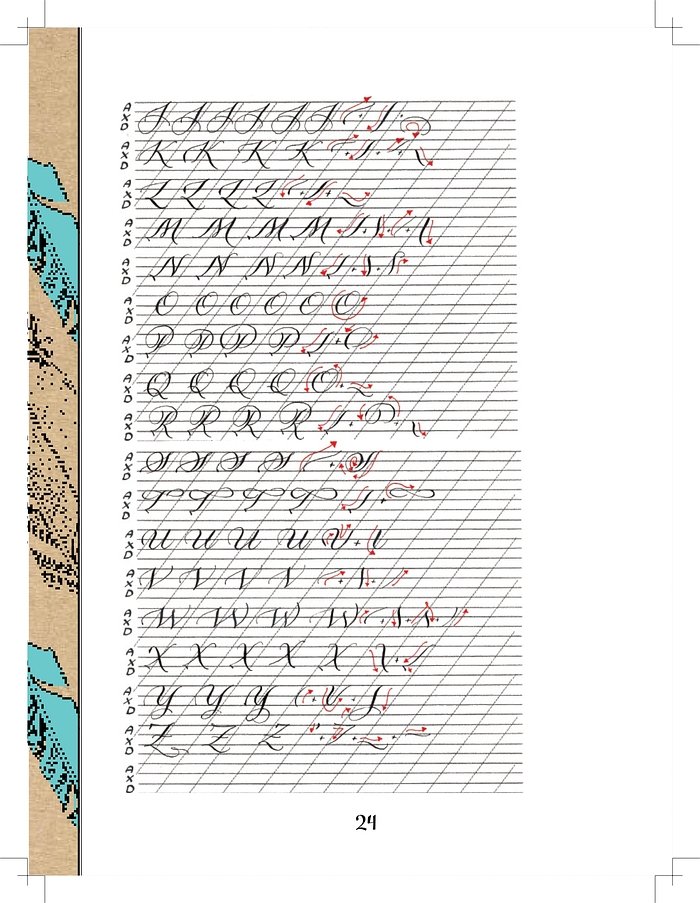 A X D J J J J J J
A X D K K K K
A X D L L L L
A X D M M M M
A X D N N N N
A X D O O O O O O
A X D P P P P
A X D Q Q Q Q
A X D R R R R
A X D S S S S
A X D T T T T
A X D U U U U
A X D V V V V
A X D W W W W
A X D X X X X X
A X D Y Y Y
A X D Z Z Z
A X D
24